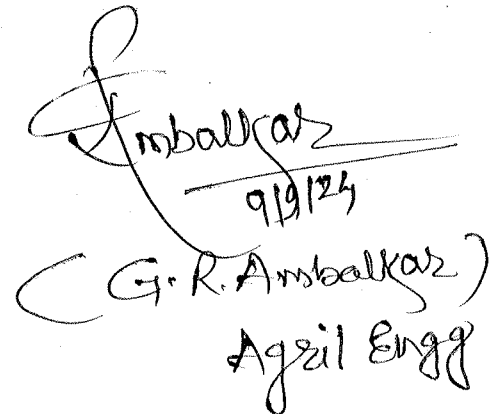 Ambalkar
9/9/24
(G.R. Ambalkar)
Agril Engg